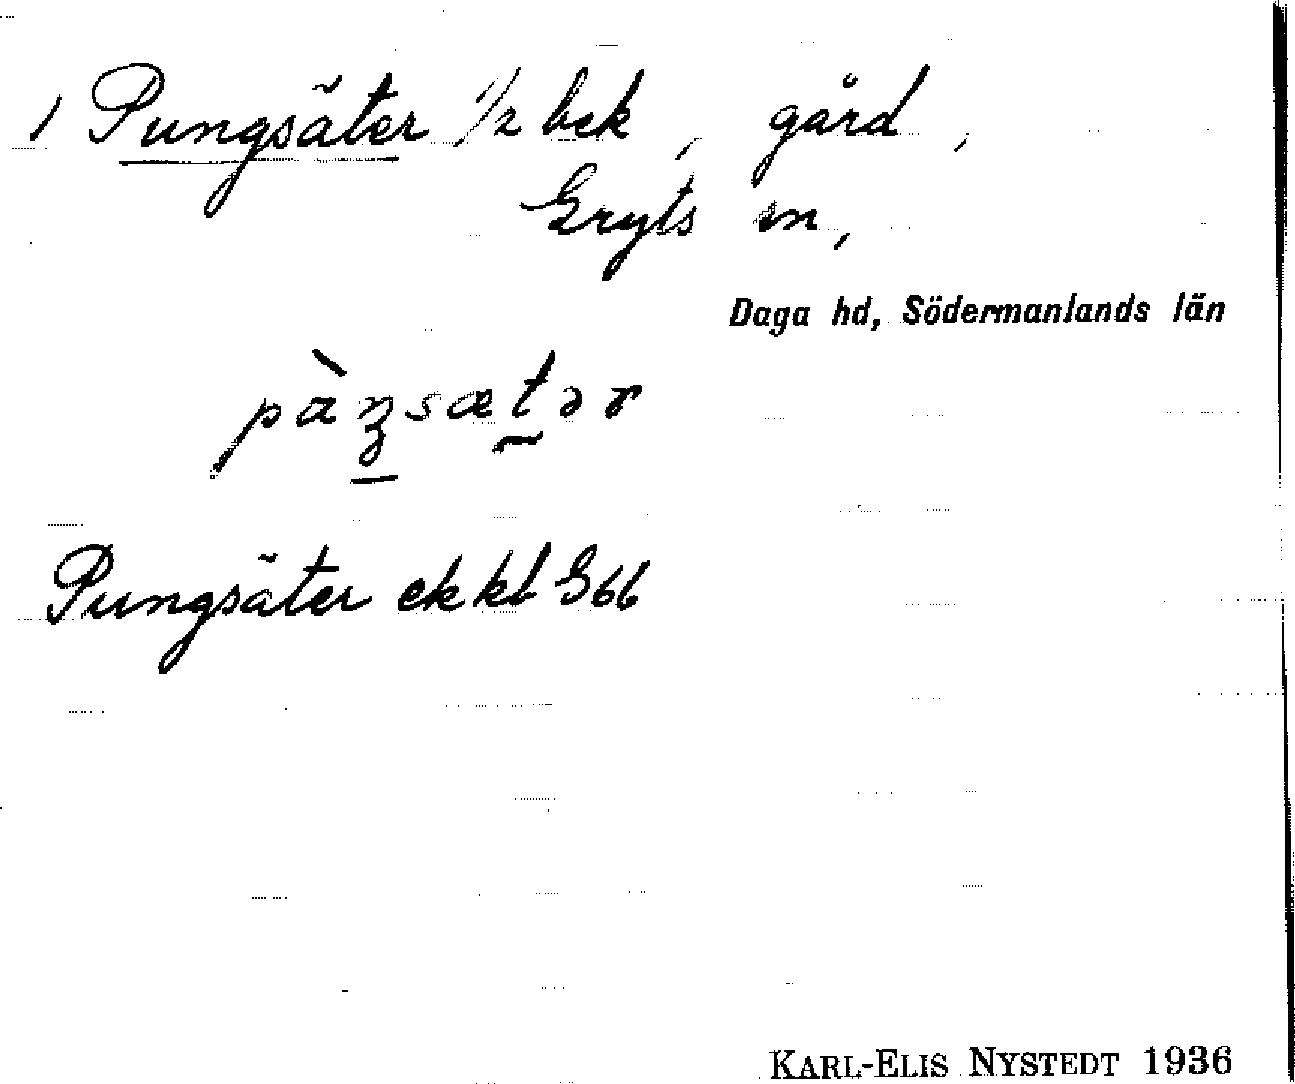 1 Pungsäter 1/2 bek, gård,
Gryts sn,
Daga hd, Södermanlands län
Pungsäter ekkbl G66
KARL-ELIS NYSTEDT 1936